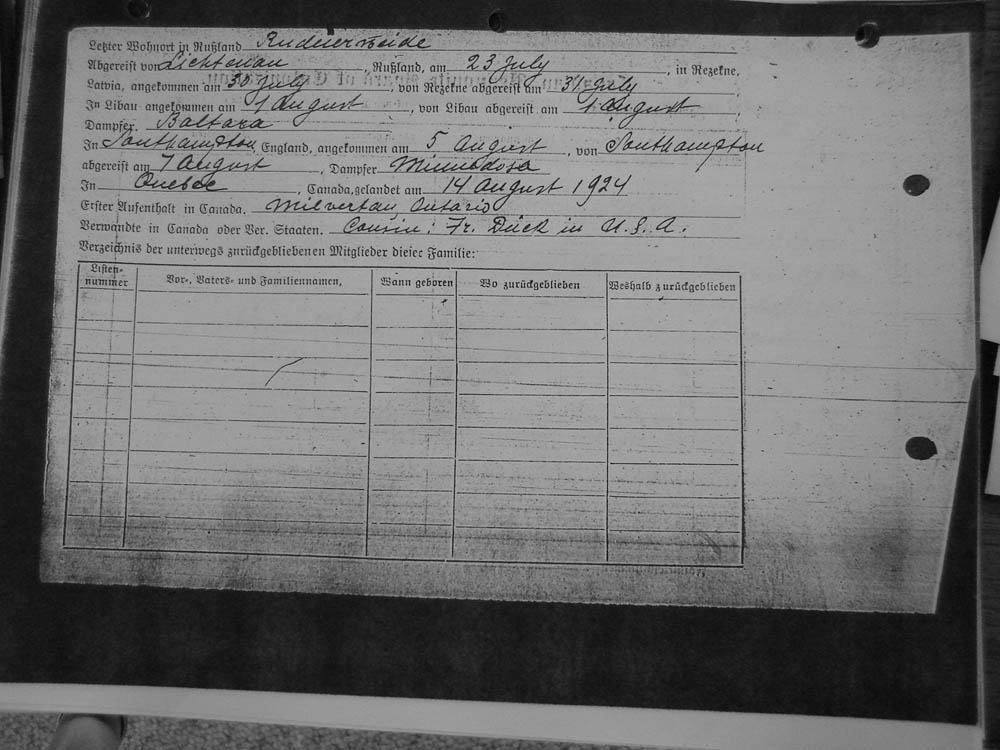 Letzter Wohnort in Rußland Rudnerweide
Abgereist von Lichtenau, Rußland, am 23 July, in Rezekne,
Latvia, angekommen am 30 July, von Rezekne abgereist am 31 July
In Libau angekommen am 1 August, von Libau abgereist am 1 August
Dampfer Baltara
In Southampton England, angekommen am 5 August, von Southampton
abgereist am 7 August, Dampfer Minnedosa
In Quebec, Canada, gelandet am 14 August 1924
Erster Aufenthalt in Canada. Milvertan Ontario
Verwandte in Canada oder Ver. Staaten. Cousin: Fr. Dück in U.S.A.
Verzeichnis der unterwegs zurückgebliebenen Mitglieder dieser Familie:
Listen-nummer Vor-, Vaters- und Familiennamen, Wann geboren Wo zurückgeblieben Weshalb zurückgeblieben